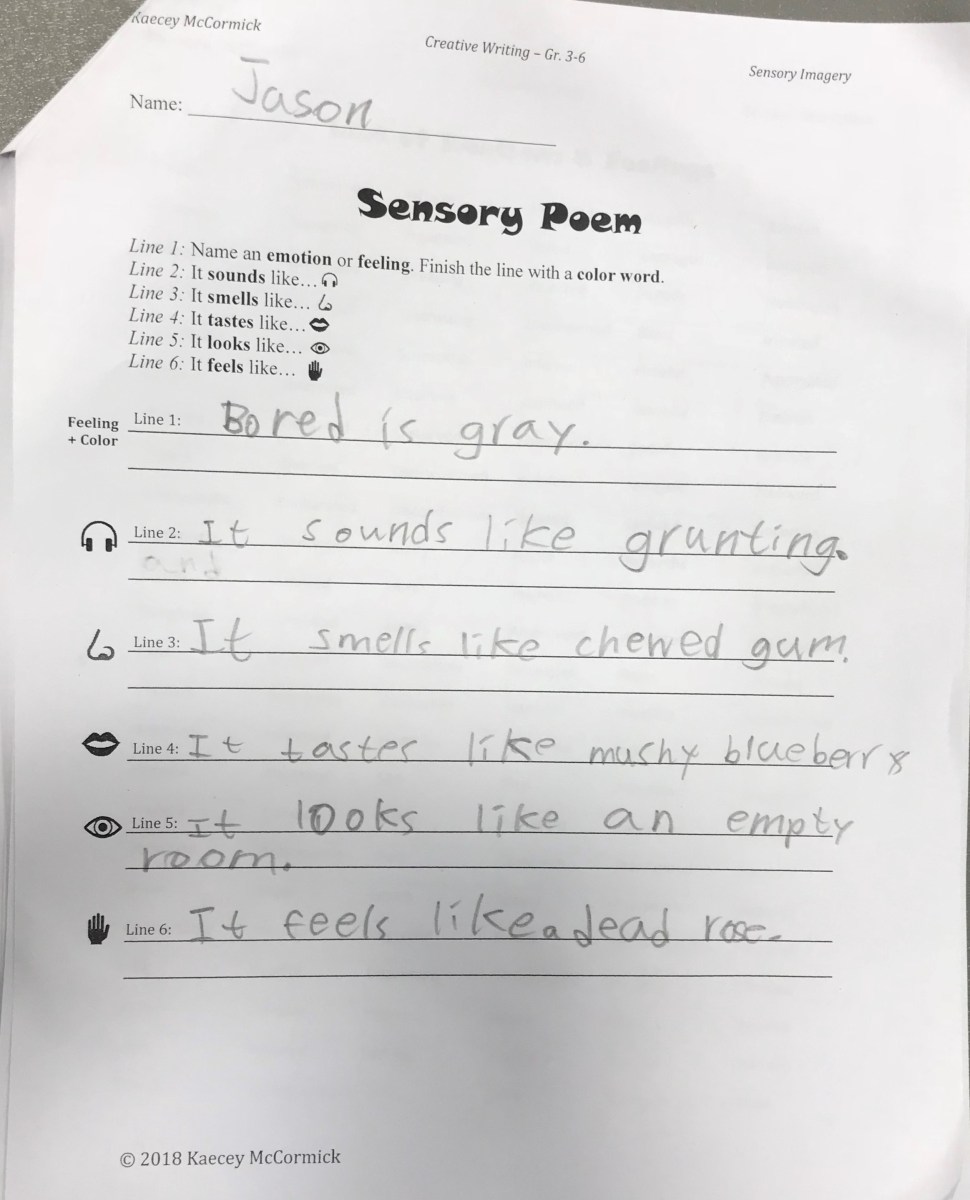 Kaecey McCormick
Creative Writing – Gr. 3-6
Sensory Imagery
Name: Jason
Sensory Poem
Line 1: Name an emotion or feeling. Finish the line with a color word.
Line 2: It sounds like...
Line 3: It smells like...
Line 4: It tastes like...
Line 5: It looks like...
Line 6: It feels like...
Feeling + Color
Line 1: Bored is gray.
Line 2: It sounds like grunting.
and
Line 3: It smells like chewed gum.
Line 4: It tastes like mushy blueberry
Line 5: It looks like an empty
room.
Line 6: It feels like a dead rose.
© 2018 Kaecey McCormick